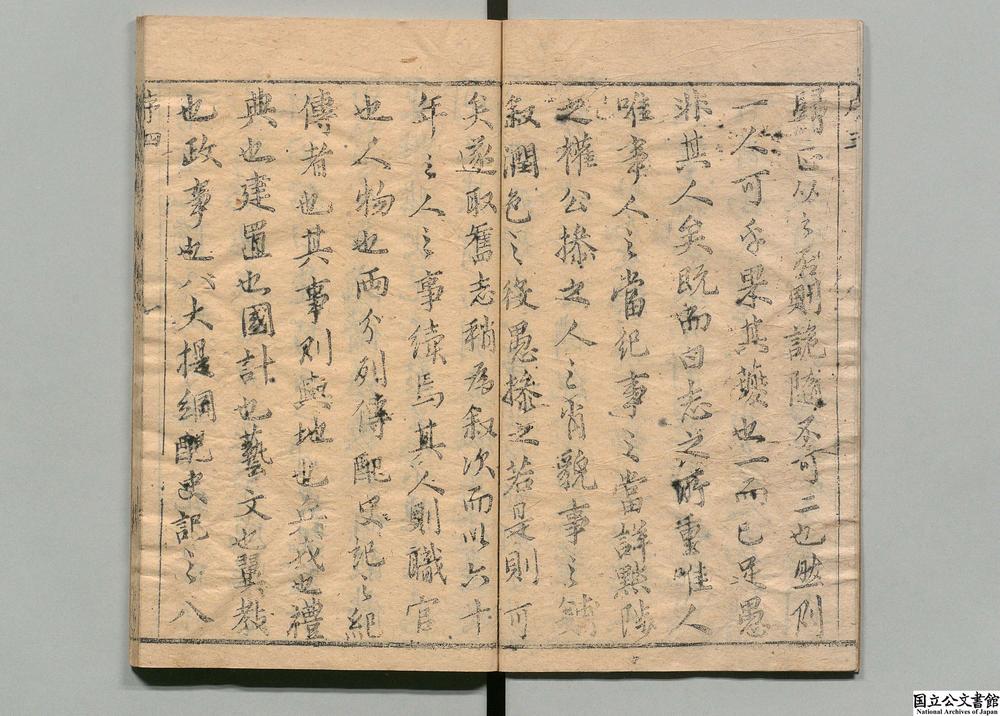 序三
歸正以之則詭隨不可二也然則
一人可乎累其也一而已足愚
非其人矣既而曰志之所重唯人
唯事人之當紀事之當詳黜陟
之權公操之人之肖貌事之鋪
叙潤色之役愚操之若是則可
矣遂取舊志稍為叙次而以六十
年之人之事續焉其人則職官
也人物也兩分列傳配史記之紀
傳者也其事則輿地也兵戎也禮
典也建置也國計也藝文也翼教
也政事也八大提綱配史記之八
序四
国立公文書館
National Archives of Japan